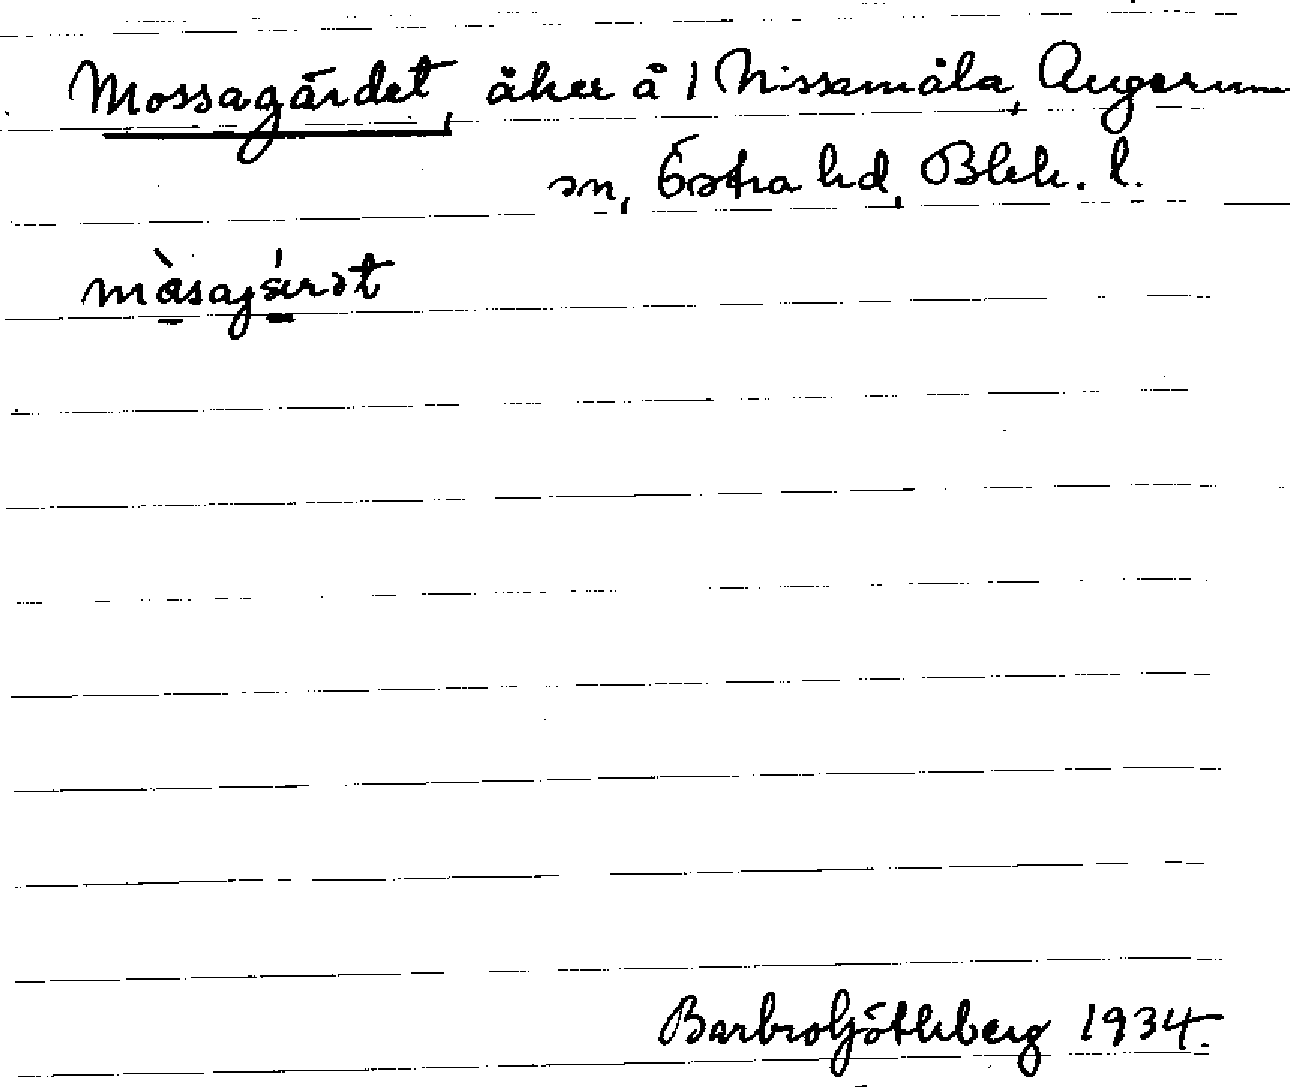 Mossagärdet, åker å 1 Nissamåla, Augerum
sn, Östra hd, Blek. l.
Barbro Götheberg 1934.